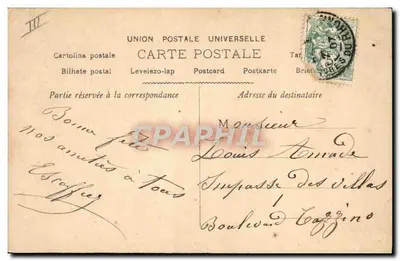 III
UNION POSTALE UNIVERSELLE
Cartolina postale CARTE POSTALE
Bilhete postal Levelezo-lap Postcard Postkarte
Partie réservée à la correspondance
Adresse du destinataire
Bonne fête
nos amitiés à tous
Escoffier
Monsieur
Louis Amade
Impasse des Villas
Boulevard
Cartepostale